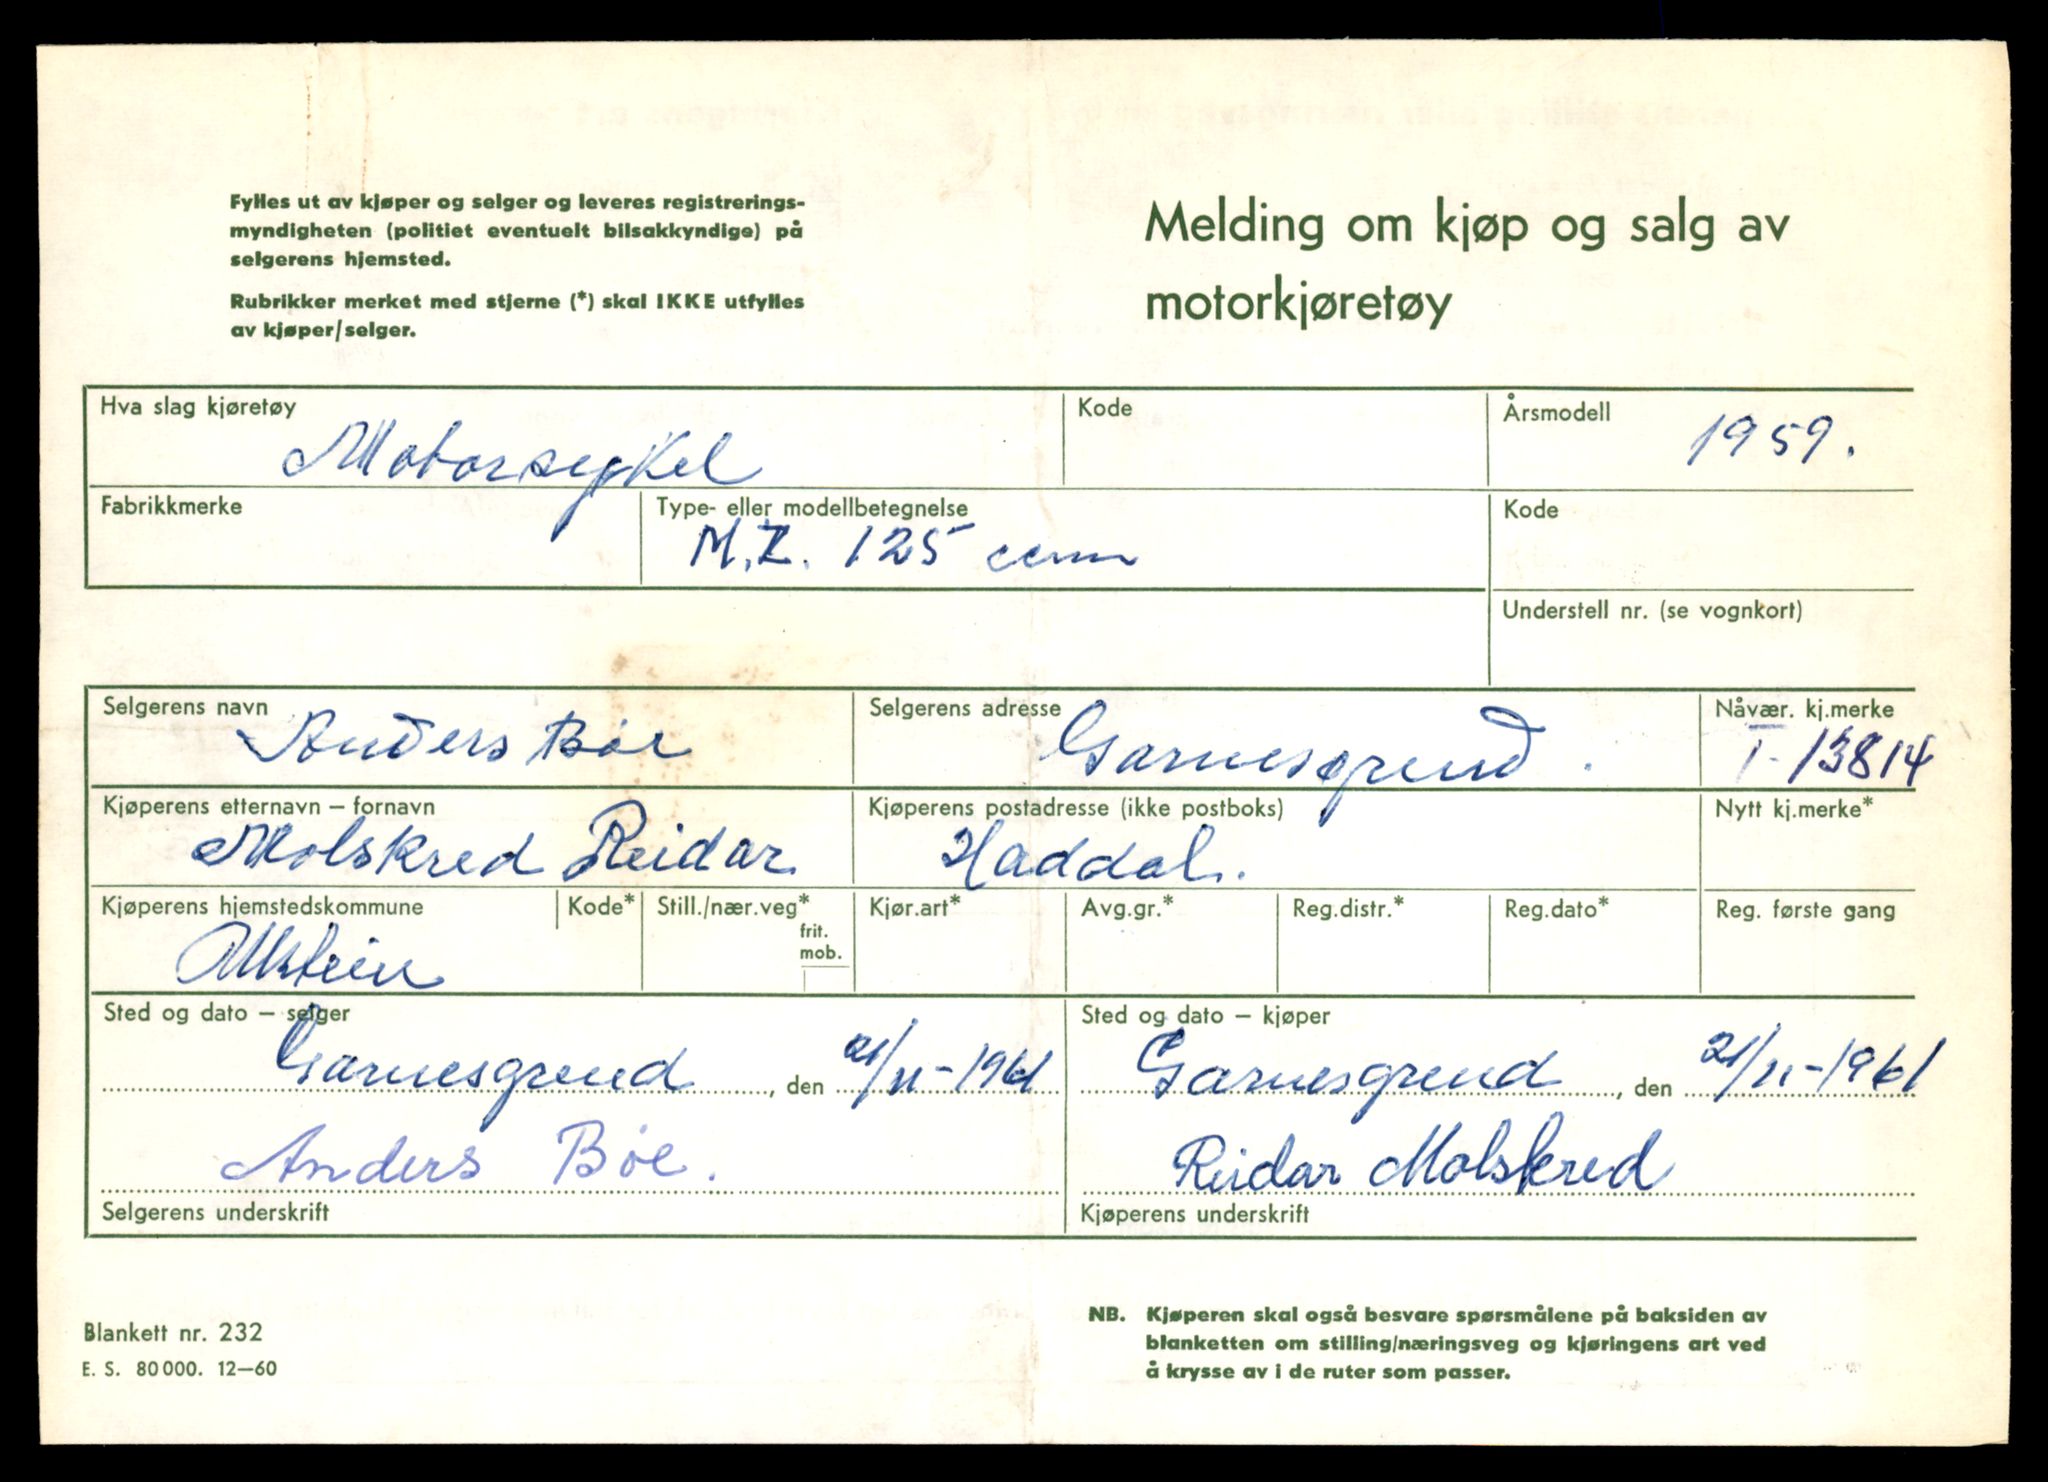 Fylles ut av kjøper og selger og leveres registrerings-
myndigheten (politiet eventuelt bilsakkyndige) på
selgerens hjemsted.
Rubrikker merket med stjerne (*) skal IKKE utfylles
av kjøper/selger.
Melding om kjøp og salg av
motorkjøretøy
Hva slag kjøretøy
Motorsykkel
Kode
Årsmodell
1959.
Fabrikkmerke
Type- eller modellbetegnelse
M.Z. 125 ccm
Kode
Understell nr. (se vognkort)
Selgerens navn
Anders Bøe
Selgerens adresse
Garnesgrend.
Nåvær. kj.merke
T-13814
Kjøperens etternavn – fornavn
Molskred Reidar
Kjøperens postadresse (ikke postboks)
Haddal.
Nytt kj.merke*
Kjøperens hjemstedskommune
Ulstein
Kode*
Still./nær.veg*
frit.
mob.
Kjør.art*
Avg.gr.*
Reg.distr.*
Reg.dato*
Reg. første gang
Sted og dato – selger
Garnesgrend, den 21/11-1961
Sted og dato – kjøper
Garnesgrend, den 21/11-1961
Anders Bøe.
Selgerens underskrift
Reidar Molskred
Kjøperens underskrift
Blankett nr. 232
E. S. 80 000. 12–60
NB. Kjøperen skal også besvare spørsmålene på baksiden av
blanketten om stilling/næringsveg og kjøringens art ved
å krysse av i de ruter som passer.